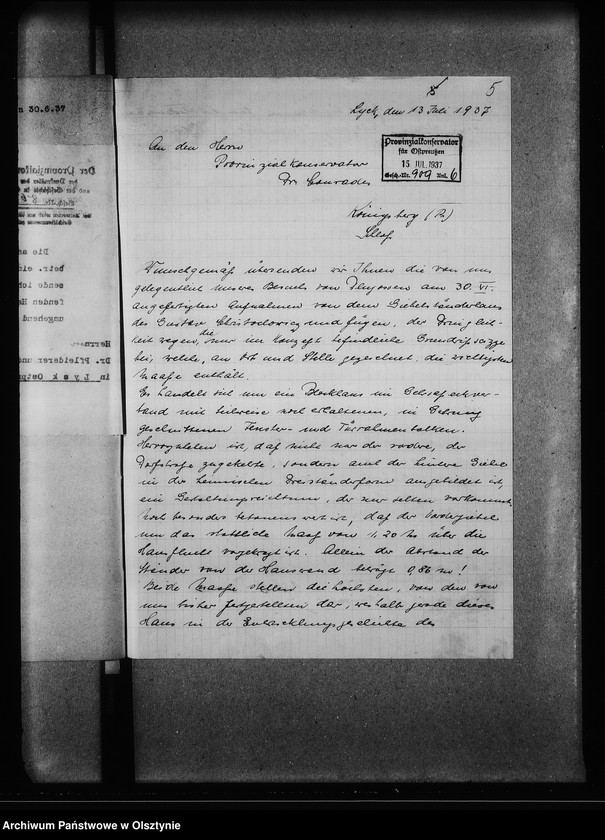 n 30.6.37
8 5
Lyck, den 13 Juli 1937
An den Herrn
Provinzialkonservator
Dr Conrades
Provinzialkonservator
für Ostpreußen
15 JUL. 1937
Gesch.-Nr. 909 Anl. 6
Königsberg (Pr)
Schloß
Wunschgemäß übersenden wir Ihnen die von uns
gelegentlich unseres Besuchs von am 30. VI.
angefertigten Aufnahmen von dem Giebelständerhaus
des Gustav und fügen, der Dringlich-
keit wegen, die nur im Konzept befindliche Grundrißskizze
bei, welche, an Ort und Stelle gezeichnet, die wichtigsten
Maaße enthält.
Es handelt sich um ein Blockhaus im Gehrsaßeckver-
band mit teilweise noch erhaltenen, in Gehrung
geschnittenen Fenster- und Türrahmenbalken.
Hervorzuheben ist, daß nicht nur der vordere, der
Dorfstraße zugekehrte, sondern auch der hintere Giebel
in der heimischen Dreiständerform ausgebildet ist,
ein Gestaltungsreichtum, der nur selten vorkommt.
Noch besonders betonenswert ist, daß der Vordergiebel
um das stattliche Maaß von 1,20 m über die
Hausflucht vorgekragt ist. Allein der Abstand der
Ständer von der Hauswand beträgt 0,86 m!
Beide Maaße stellen die höchsten, von den von
uns bisher festgestellten dar, weshalb gerade dieses
Haus in der Entwicklungsgeschichte des
Der Provinzialkon
Die an
betr. ei
sende ich
fenden H
umgehend
Herrn
Dr. Pfleiderer un
in Lyck Ostp
Archiwum Państwowe w Olsztynie